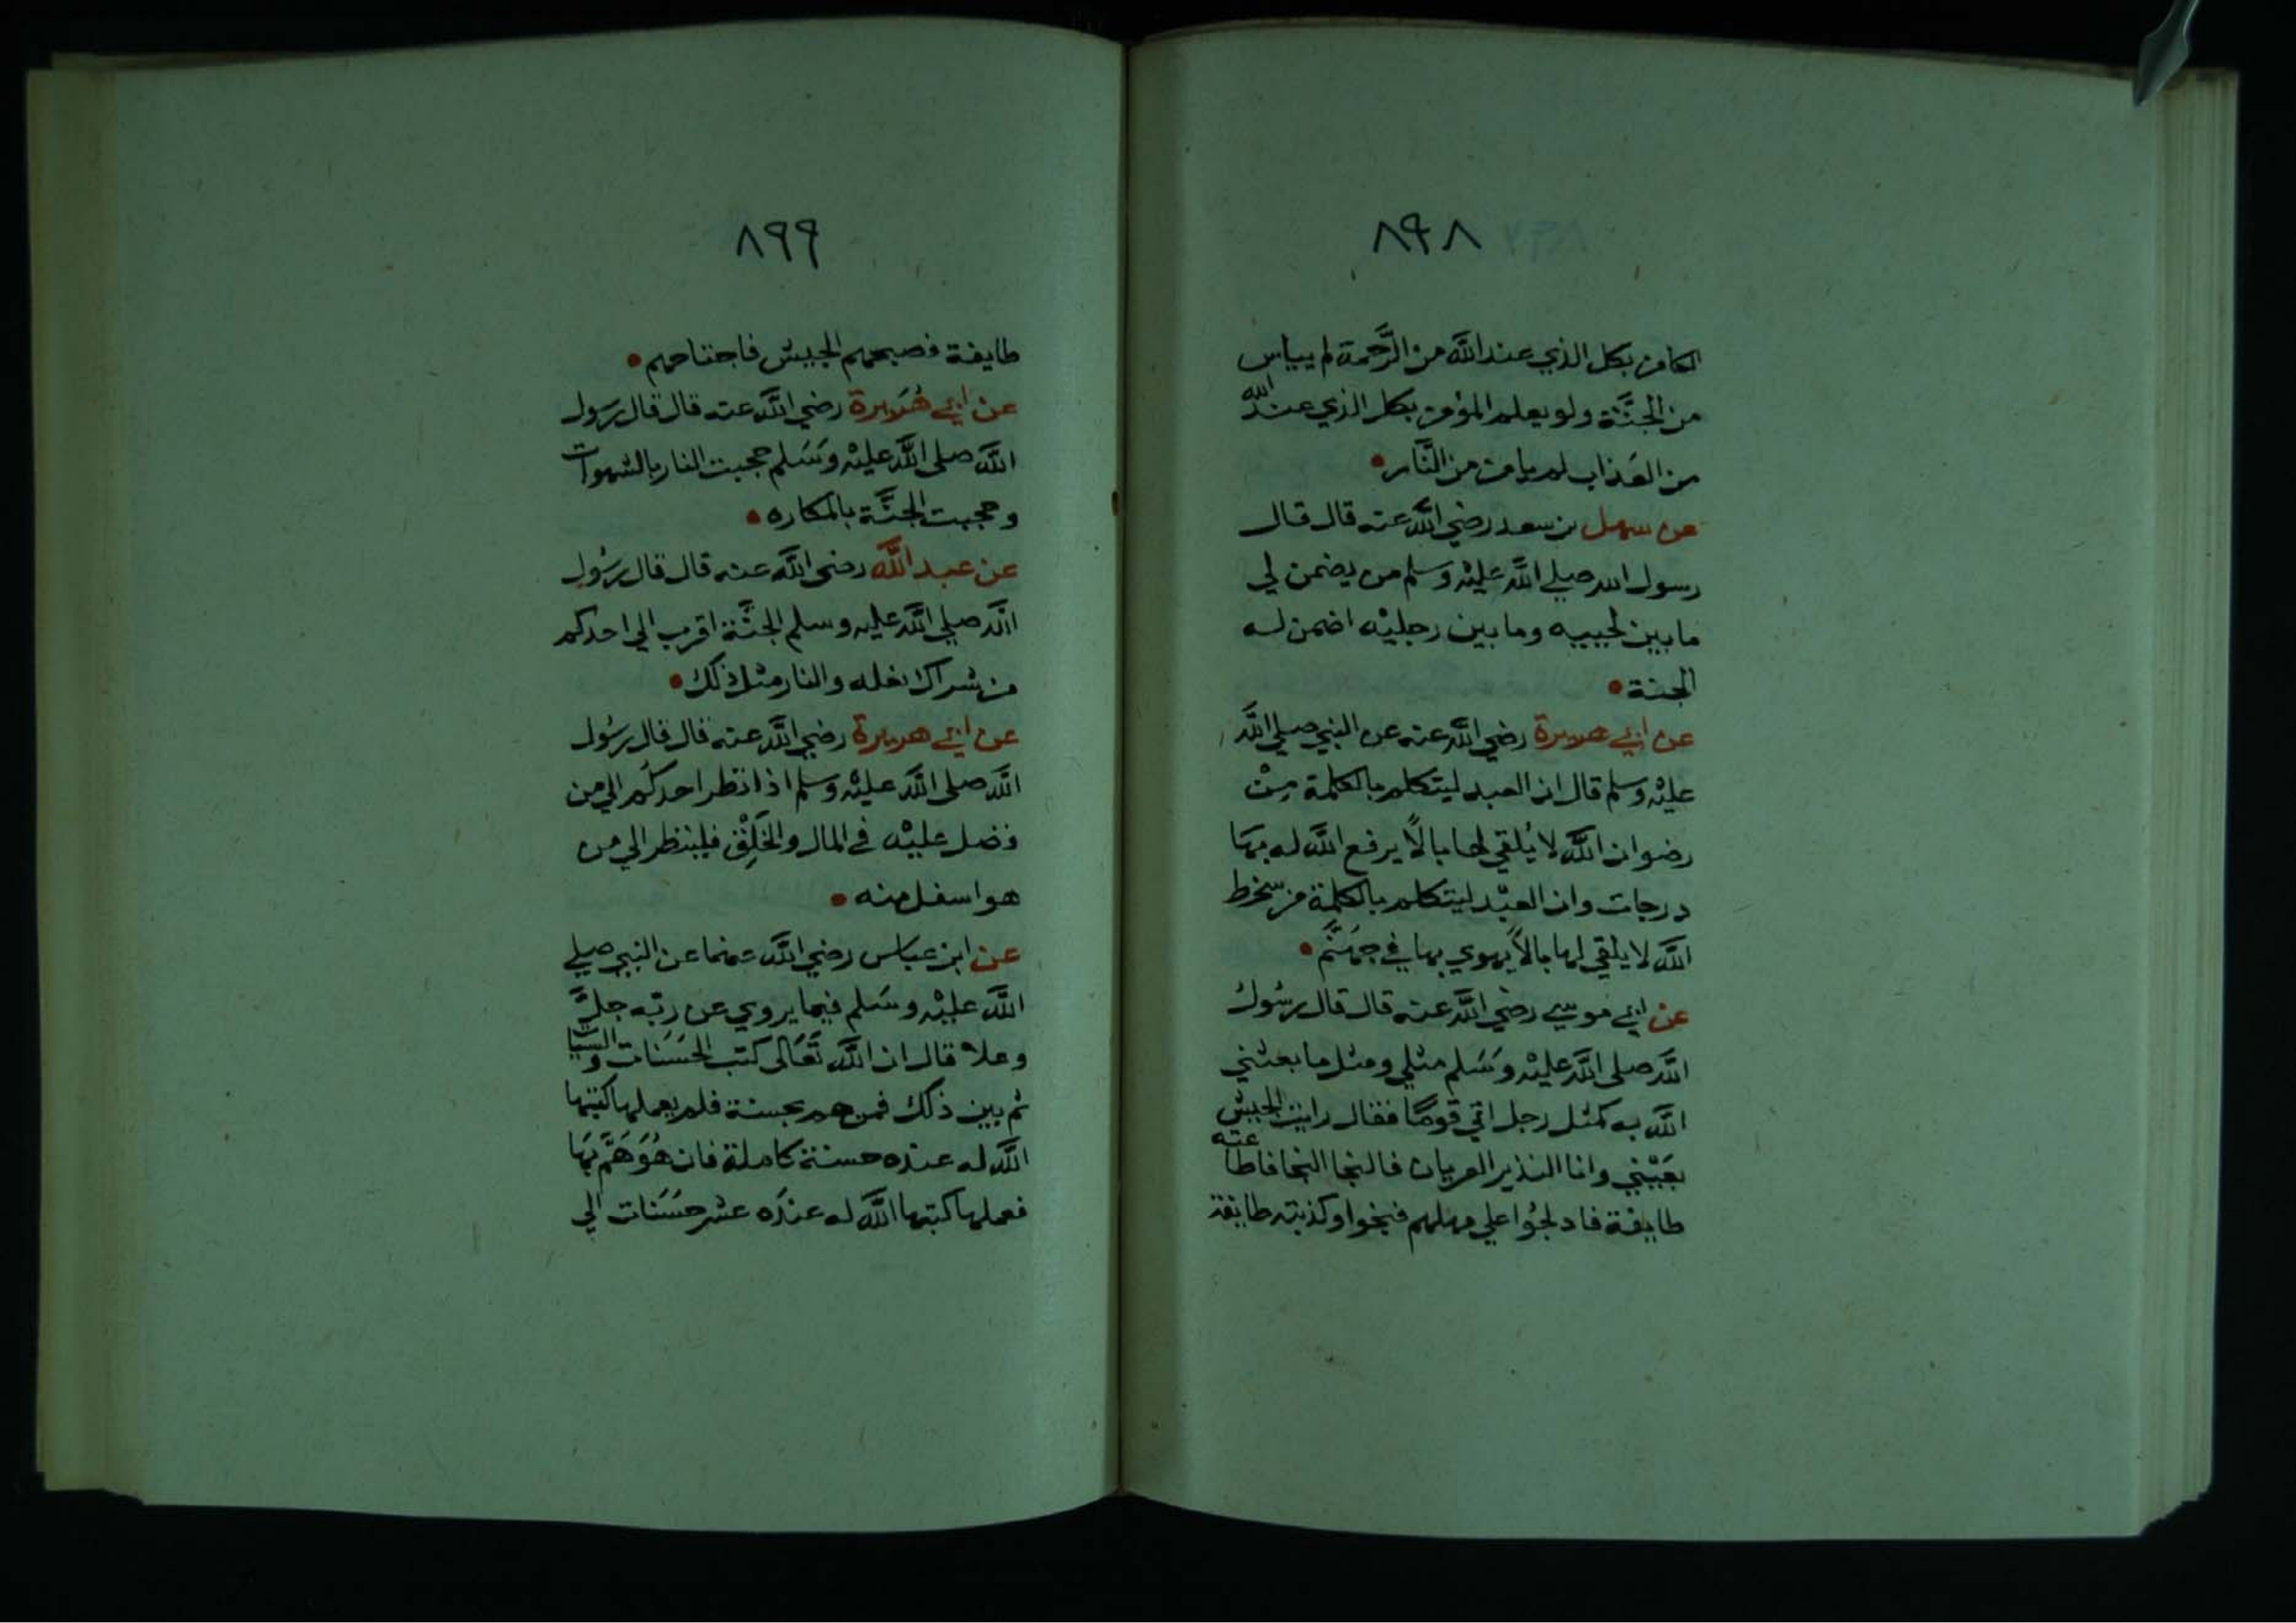 ٨٩٨
الكافر بكل الذي عند الله من الرَّحمة لم يياس
من الجنَّة ولو يعلم المؤمن بكل الذي عند الله
من العَذاب لم يامن من النَّار
عن سهل بن سعد رضي الله عنه قال قال
رسول الله صلي الله عليْه وسلم من يضمن لي
ما بين لحييه وما بين رجليْه اضمن له
الجنة
عن ابي هريرة رضي الله عنه عن النبي صلي الله
عليْه وسلم قال ان العبد ليتكلم بالكلمة مِنْ
رضوان الله لا يُلقي لها بالًا يرفع الله له بهَا
درجات وان العبْد ليتكلم بالكلمة من سخط
الله لا يلقي لها بالًا يهوي بها في جهَنَّم
عن ابي موسي رضي الله عنه قال قال رسُول
الله صلي الله عليْه وسَلم مثلي ومثل ما بعثني
الله به كمثل رجل اتي قومًا فقال رايت الجيش
بعَيْني وانا النذير العريان فالنجا النجا فاطاعته
طايفة فادلجُوا علي مهلهم فنجوا وكذبته طايفة
٨٩٩
طايفة فصبحهم الجيش فاجتاحهم
عن ابي هُرَيرة رضي الله عنه قال قال رسول
الله صلي الله عليْه وسَلم حجبت النار بالشهوات
وحجبت الجنَّة بالمكاره
عن عبد الله رضي الله عنه قال قال رسُول
الله صلي الله عليه وسلم الجنَّة اقرب الي احدكم
من شراك نعله والنار مثل ذلك
عن ابي هريرة رضي الله عنه قال قال رسُول
الله صلي الله عليْه وسلم اذا نظر احدكُم الي من
فضل عليْه في المال والخَلِقْ فلينظر الي من
هو اسفل منه
عن ابن عباس رضي الله عنهما عن النبي صلي
الله عليْه وسَلم فيما يروي عن ربّه جلَّ
وعلا قال ان الله تَعَالى كتب الحسَنات والسيات
ثم بين ذلك فمن هم بحسنة فلم يعملها كتبها
الله له عنده حسنة كاملة فان هُوَ هَمَّ بهَا
فعملها كتبها الله له عندَه عشر حسَنات الي